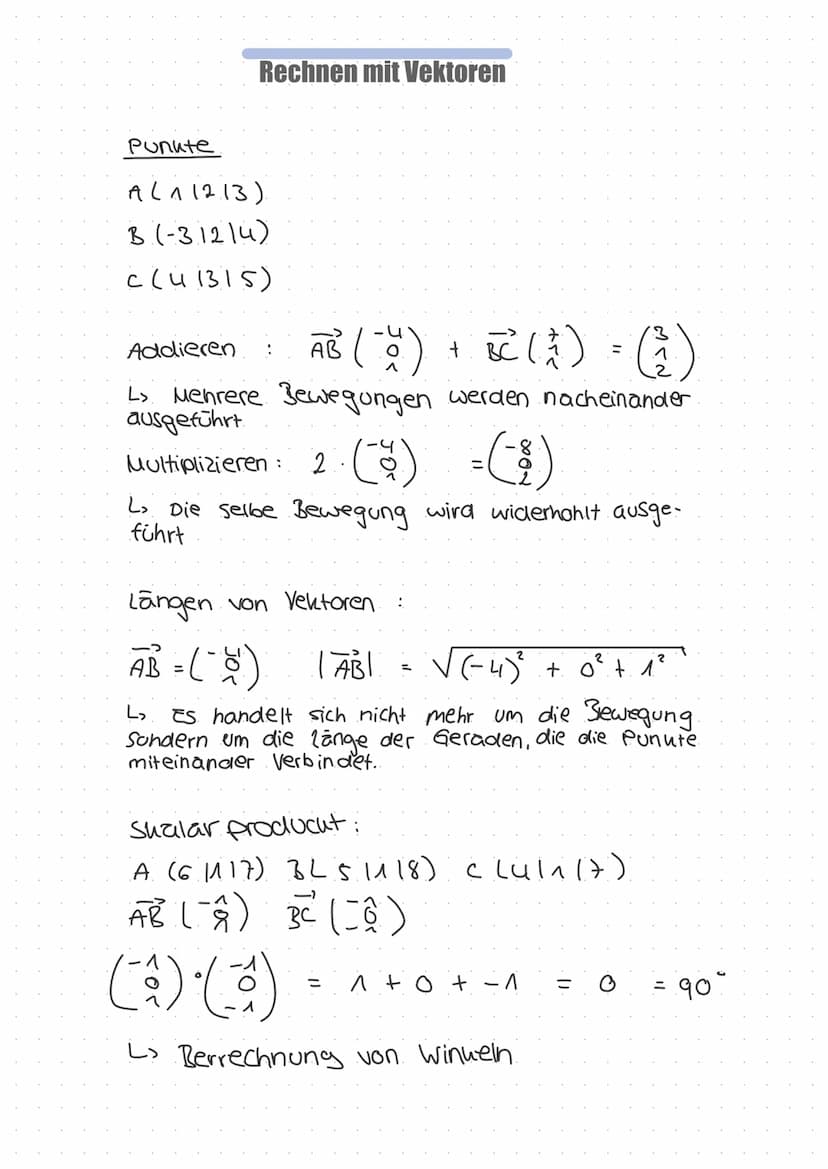 Rechnen mit Vektoren
Punkte
A(1|2|3)
B(-3|2|4)
C(4|3|5)
Addieren : AB→ (-4 0 1) + BC→ (7 1 1) = (3 1 2)
↳ Mehrere Bewegungen werden nacheinander
ausgeführt
Multiplizieren : 2 · (-4 0 1) = (-8 0 2)
↳ Die selbe Bewegung wird widerhohlt ausge-
führt
Längen von Vektoren :
AB→ = (-4 0 1) |AB→| = √(-4)² + 0² + 1²
↳ Es handelt sich nicht mehr um die Bewegung
sondern um die länge der Geraden, die die Punkte
miteinander Verbindet.
Skalar producukt :
A (6|1|7) B(5|1|8) C(4|1|7)
AB→ (-1 0 1) BC→ (-1 0 -1)
(-1 0 1) ∘ (-1 0 -1) = 1 + 0 + -1 = 0 = 90°
↳ Berrechnung von Winkeln